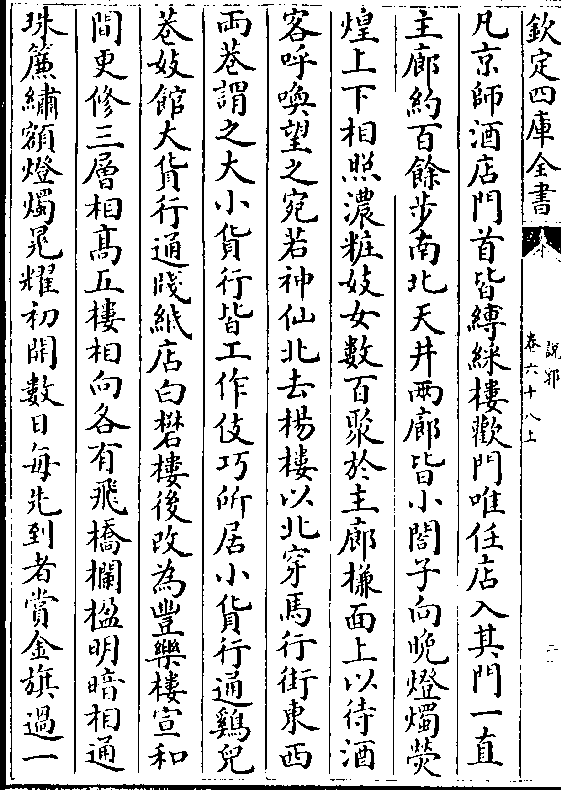 欽定四庫全書
說郛
卷六十八上
凡京師酒店門首皆縛綵樓歡門唯任店入其門一直
主廊約百餘步南北天井兩廊皆小閤子向晚燈燭熒
煌上下相照濃粧妓女數百聚於主廊槏面上以待酒
客呼喚望之宛若神仙北去楊樓以北穿馬行街東西
兩巷謂之大小貨行皆工作伎巧所居小貨行通鷄兒
巷妓館大貨行通牋紙店白礬樓後改為豐樂樓宣和
間更修三層相髙五樓相向各有飛橋欄楹明暗相通
珠簾繡額燈燭晃耀初開數日每先到者賞金旗過一